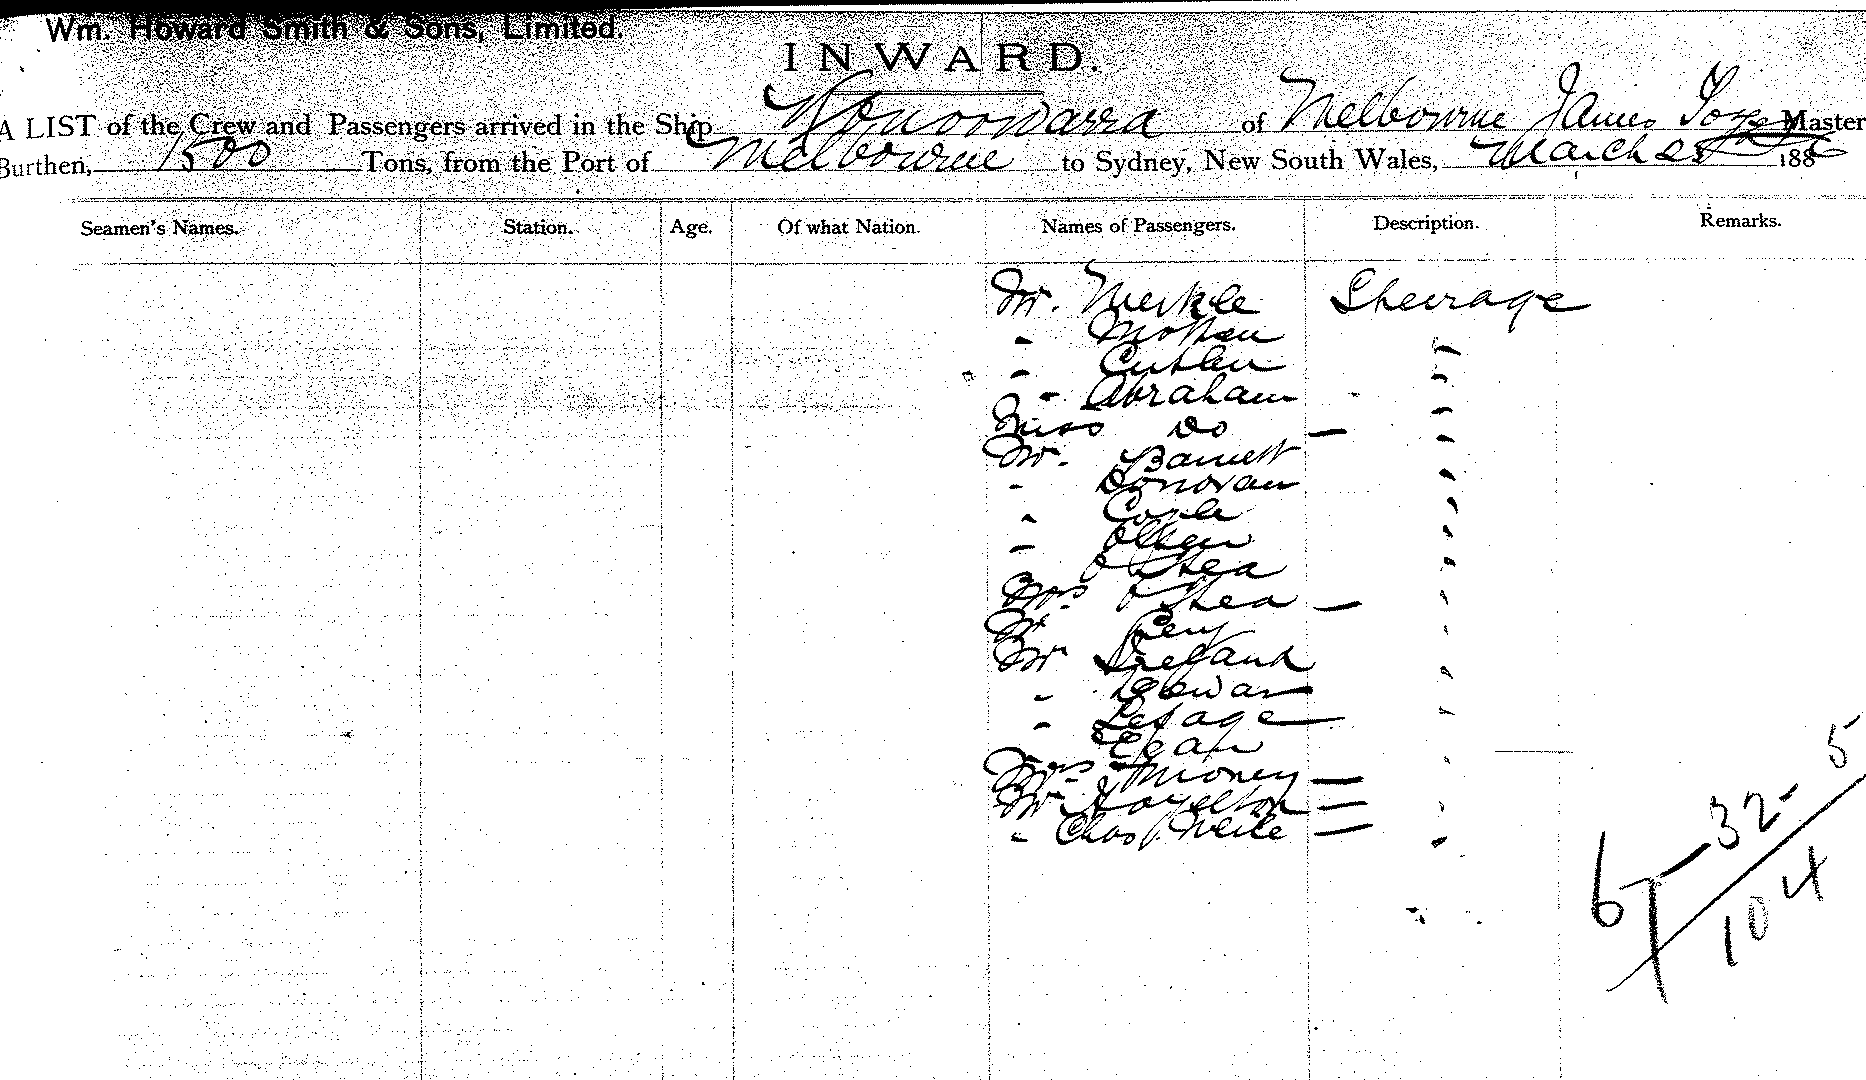 Wm. Howard Smith & Sons, Limited.
INWARD.
A LIST of the Crew and Passengers arrived in the Ship Konoowarra of Melbourne James Master
Burthen, 1500 Tons, from the Port of Melbourne to Sydney, New South Wales, March 188
Seamen's Names. Station. Age. Of what Nation. Names of Passengers. Description. Remarks.
Mr. Merkle
" 
" Cutler "
" Abraham "
Miss Do — "
Mr. Barnett "
" Donovan "
" Coyle "
" Olsen "
O'Shea "
Mrs O'Shea — "
Mr
Mr
" Dewar "
" Lesage "
Egan
Mrs Money —
Mr Hazelton —
" Chas —
5
32
6
104